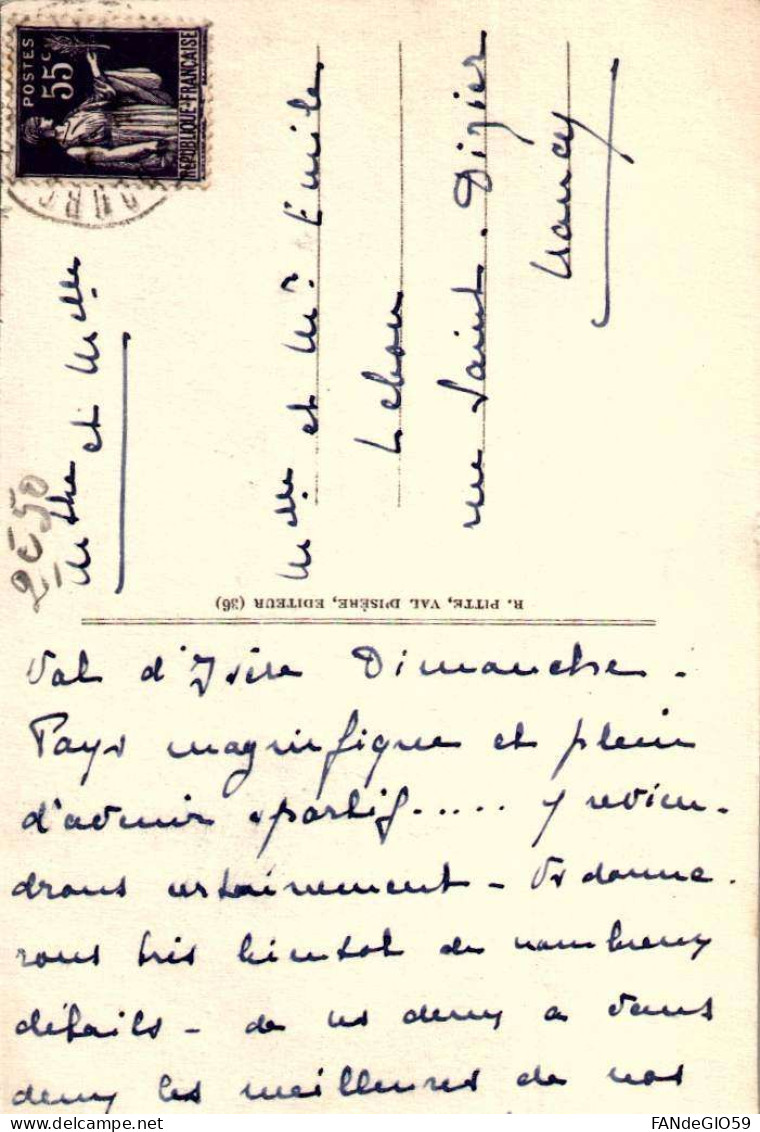 POSTES
55 c
REPUBLIQUE FRANÇAISE
2€50
et Melle
Melle et Mr Emile
Lebon
rue Saint. Dizier
Nancy
R. PITTE, VAL D'ISÈRE, EDITEUR (36)
Val d'Isère Dimanche -
Pays magnifique et plein
d'avenir sportif..... y revien-
drons certainement - Vs donne-
rons très bientôt de nombreux
détails - de ns deux à vous
deux les meilleures de nos
FANdeGIO59